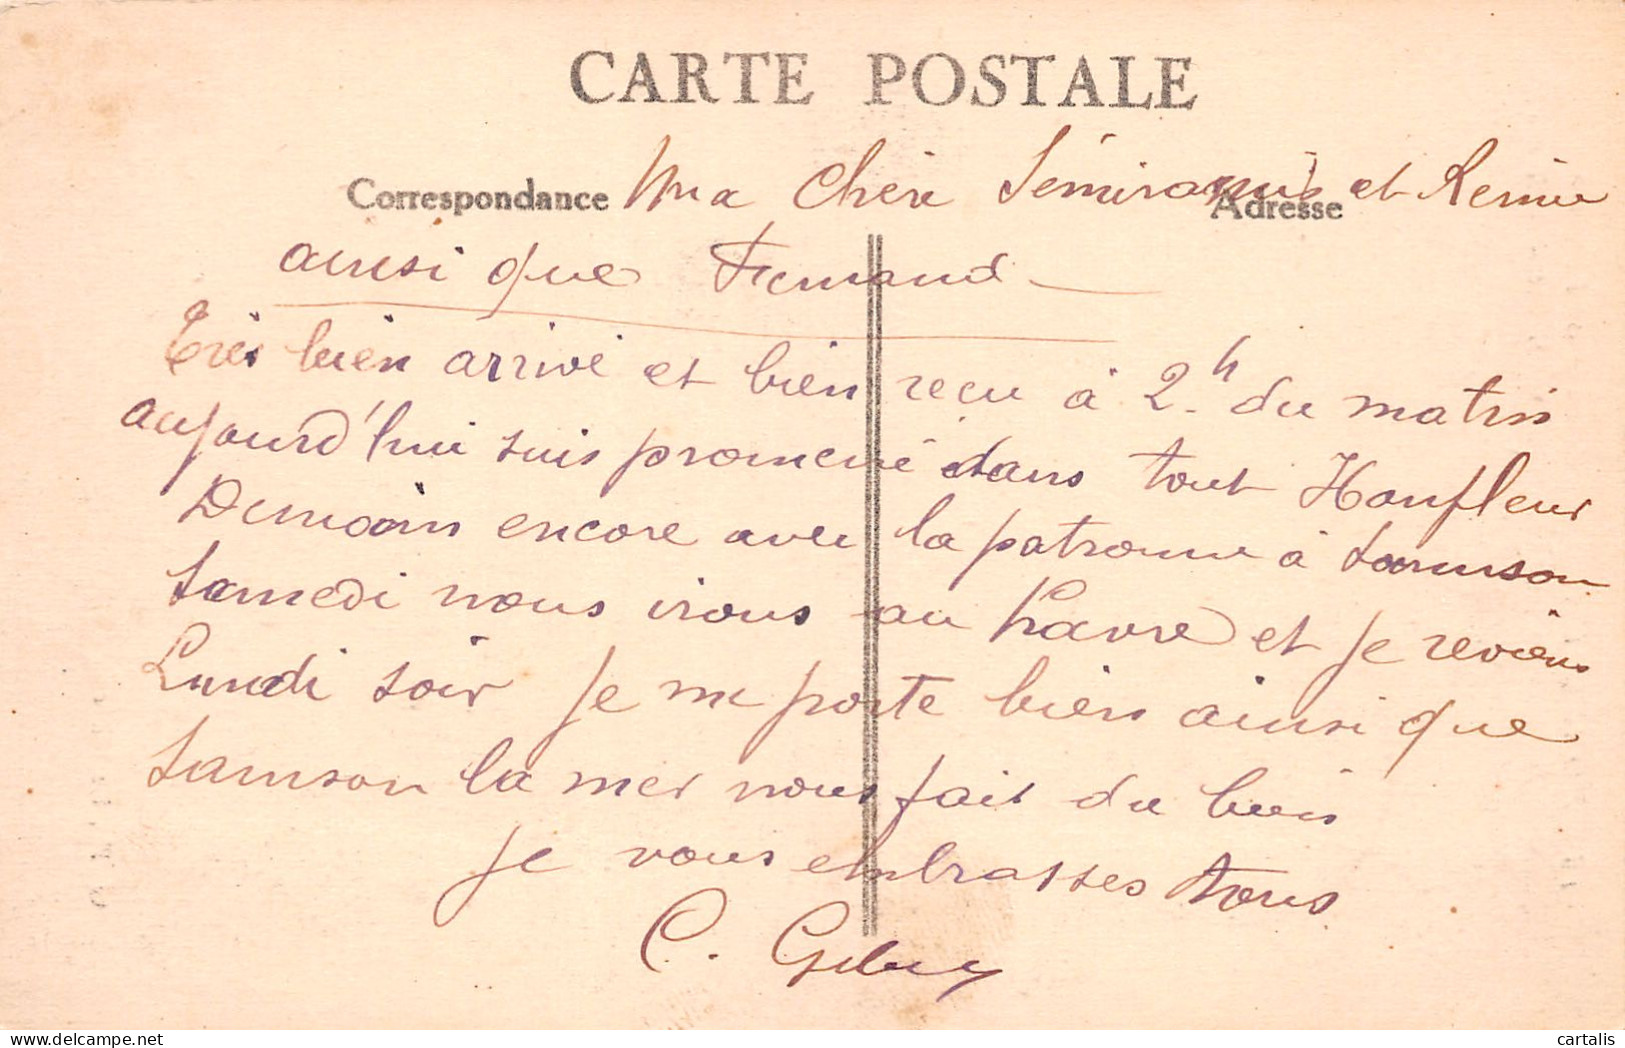 CARTE POSTALE
Correspondance
Adresse
Ma Chère Sémiramis et
ainsi que Fernand
Très bien arrivé et bien reçu à 2h du matin
aujourd'hui suis promené dans tout Honfleur
Demain encore avec la patronne à
Samedi nous irons au havre et je reviens
Lundi soir je me porte bien ainsi que
Samson la mer nous fait du bien
je vous embrasses tous
C.
cartalis